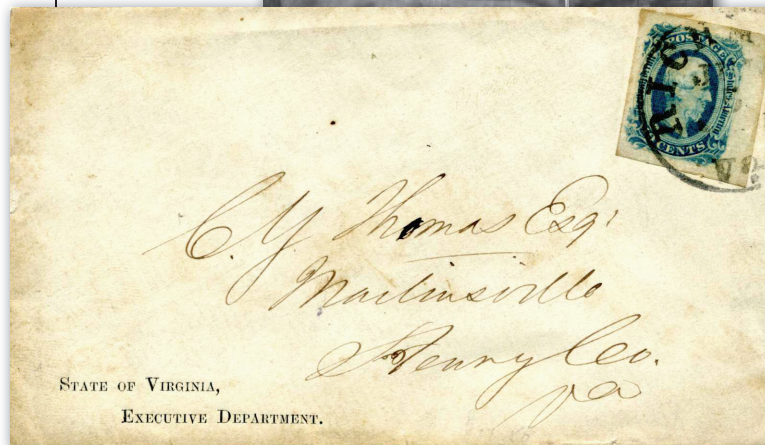 POSTAGE
CENTS
RIC
VA
C. Y. Thomas Esqr
Martinsville
Henry Co.
Va
STATE OF VIRGINIA,
EXECUTIVE DEPARTMENT.